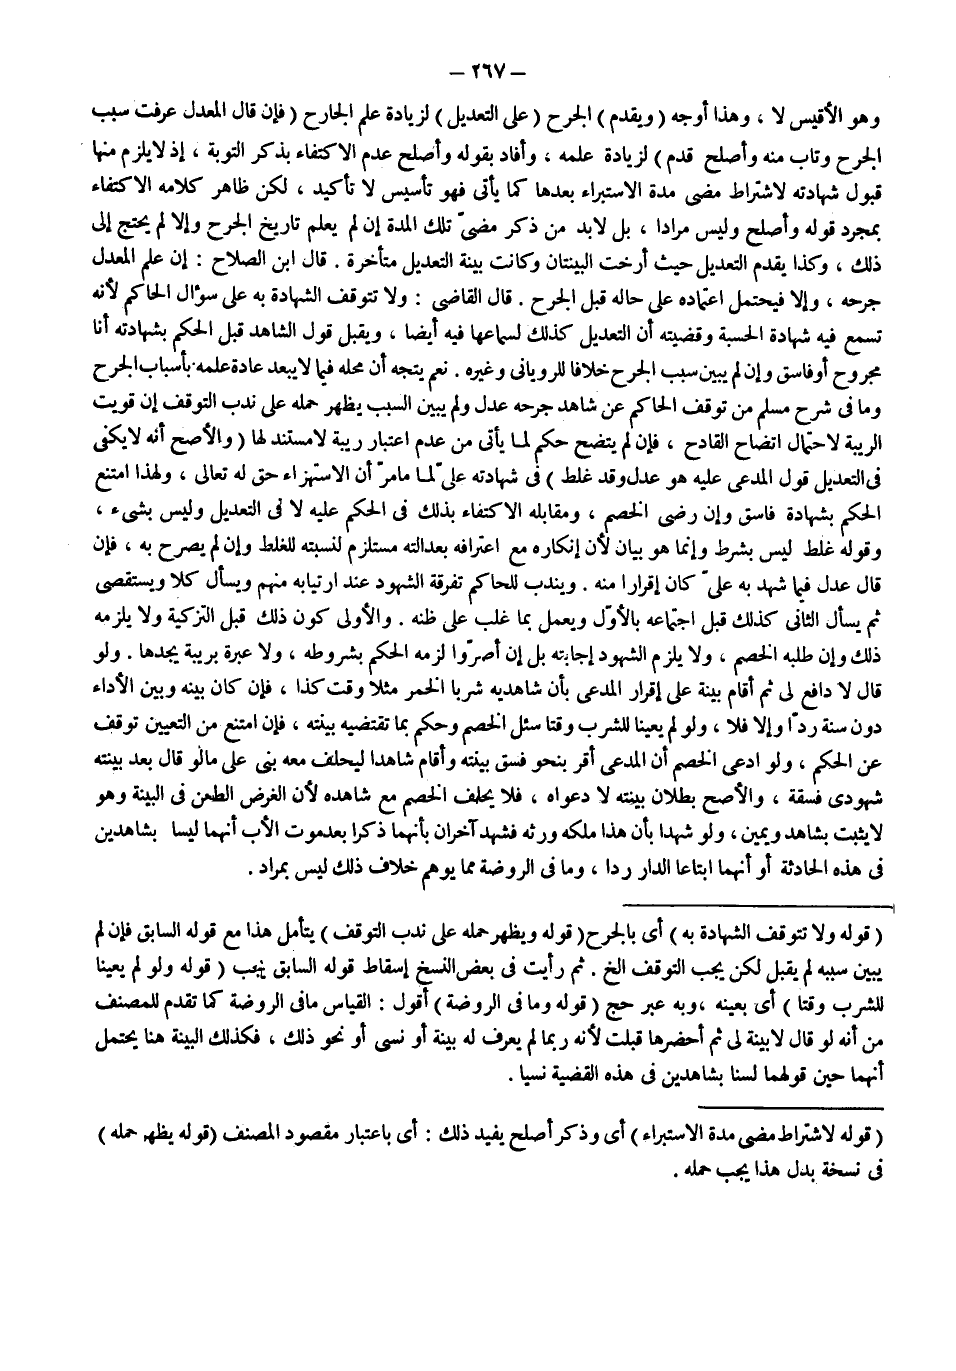 – ٢٦٧ –
وهو الأقيس لا ، وهذا أوجه ( ويقدم ) الجرح ( على التعديل ) لزيادة علم الجارح ( فإن قال المعدل عرفت سبب
الجرح وتاب منه وأصلح قدم ) لزيادة علمه ، وأفاد بقوله وأصلح عدم الاكتفاء بذكر التوبة ، إذ لايلزم منها
قبول شهادته لاشتراط مضى مدة الاستبراء بعدها كما يأتى فهو تأسيس لا تأكيد ، لكن ظاهر كلامه الاكتفاء
بمجرد قوله وأصلح وليس مرادا ، بل لابد من ذكر مضىّ تلك المدة إن لم يعلم تاريخ الجرح وإلا لم يحتج إلى
ذلك ، وكذا يقدم التعديل حيث أرخت البينتان وكانت بينة التعديل متأخرة . قال ابن الصلاح : إن علم المعدل
جرحه ، وإلا فيحتمل اعتماده على حاله قبل الجرح . قال القاضى : ولا تتوقف الشهادة به على سؤال الحاكم لأنه
تسمع فيه شهادة الحسبة وقضيته أن التعديل كذلك لسماعها فيه أيضا ، ويقبل قول الشاهد قبل الحكم بشهادته أنا
مجروح أوفاسق وإن لم يبين سبب الجرح خلافا للرويانى وغيره . نعم يتجه أن محله فيما لايبعد عادة علمه بأسباب الجرح
وما فى شرح مسلم من توقف الحاكم عن شاهد جرحه عدل ولم يبين السبب يظهر حمله على ندب التوقف إن قويت
الريبة لاحتمال اتضاح القادح ، فإن لم يتضح حكم لما يأتى من عدم اعتبار ريبة لامستند لها ( والأصح أنه لايكفى
فى التعديل قول المدعى عليه هو عدل وقد غلط ) فى شهادته علىّ لما مامرّ أن الاستهزاء حق له تعالى ، ولهذا امتنع
الحكم بشهادة فاسق وإن رضى الخصم ، ومقابله الاكتفاء بذلك فى الحكم عليه لا فى التعديل وليس بشىء ،
وقوله غلط ليس بشرط وإنما هو بيان لأن إنكاره مع اعترافه بعدالته مستلزم لنسبته للغلط وإن لم يصرح به ، فإن
قال عدل فيما شهد به علىّ كان إقرارا منه . ويندب للحاكم تفرقة الشهود عند ارتيابه منهم ويسأل كلا ويستقصى
ثم يسأل الثانى كذلك قبل اجتماعه بالأوّل ويعمل بما غلب على ظنه . والأولى كون ذلك قبل التزكية ولا يلزمه
ذلك وإن طلبه الخصم ، ولا يلزم الشهود إجابته بل إن أصرّوا لزمه الحكم بشروطه ، ولا عبرة بريبة يجدها . ولو
قال لا دافع لى ثم أقام بينة على إقرار المدعى بأن شاهديه شربا الخمر مثلا وقت كذا ، فإن كان بينه وبين الأداء
دون سنة ردّا وإلا فلا ، ولو لم يعينا للشرب وقتا سئل الخصم وحكم بما تقتضيه بينته ، فإن امتنع من التعيين توقف
عن الحكم ، ولو ادعى الخصم أن المدعى أقر بنحو فسق بينته وأقام شاهدا ليحلف معه بنى على مالو قال بعد بينته
شهودى فسقة ، والأصح بطلان بينته لا دعواه ، فلا يحلف الخصم مع شاهده لأن الغرض الطعن فى البينة وهو
لايثبت بشاهد ويمين ، ولو شهدا بأن هذا ملكه ورثه فشهد آخران بأنهما ذكرا بعدموت الأب أنهما ليسا بشاهدين
فى هذه الحادثة أو أنهما ابتاعا الدار ردا ، وما فى الروضة مما يوهم خلاف ذلك ليس بمراد .
( قوله ولا تتوقف الشهادة به ) أى بالجرح ( قوله ويظهر حمله على ندب التوقف ) يتأمل هذا مع قوله السابق فإن لم
يبين سببه لم يقبل لكن يجب التوقف الخ . ثم رأيت فى بعض النسخ إسقاط قوله السابق يجب ( قوله ولو لم يعينا
للشرب وقتا ) أى بعينه ، وبه عبر حج ( قوله وما فى الروضة ) أقول : القياس مافى الروضة كما تقدم للمصنف
من أنه لو قال لابينة لى ثم أحضرها قبلت لأنه ربما لم يعرف له بينة أو نسى أو نحو ذلك ، فكذلك البينة هنا يحتمل
أنهما حين قولهما لسنا بشاهدين فى هذه القضية نسيا .
( قوله لاشتراط مضى مدة الاستبراء ) أى وذكر أصلح يفيد ذلك : أى باعتبار مقصود المصنف ( قوله يظهر حمله )
فى نسخة بدل هذا يجب حمله .